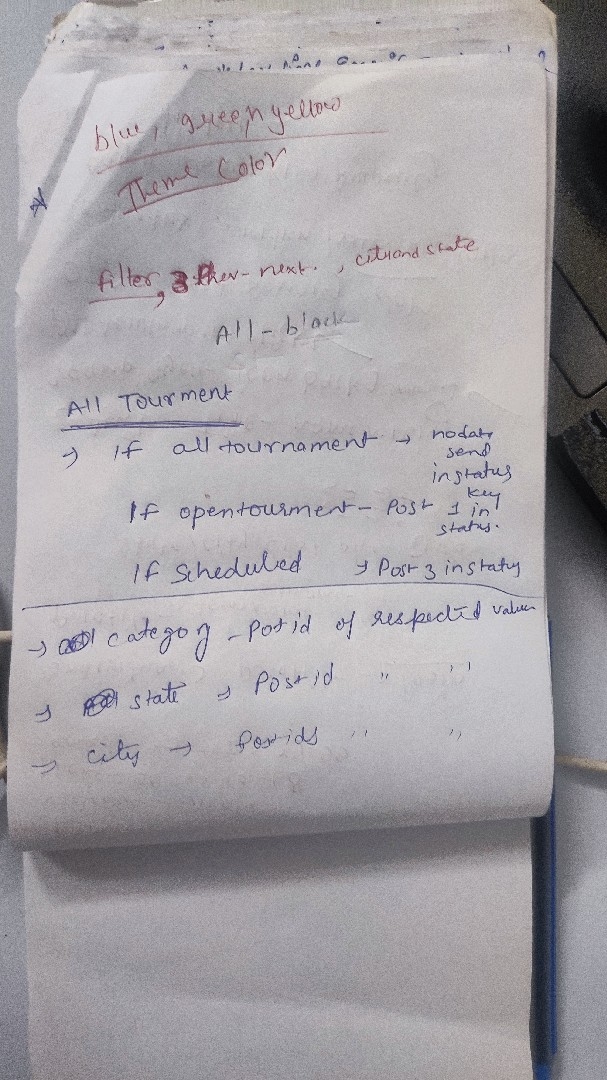 blue, green yellow
Theme Color
filter, 3 - next. , city and state
All - black
All Tourment
→ If all tournament → nodata
send
in status
key
If opentourment - Post 1 in
status.
If Scheduled → Post 3 in status
→ category - Post id of respected values
→ state → Post id " "
→ city → Post ids " "